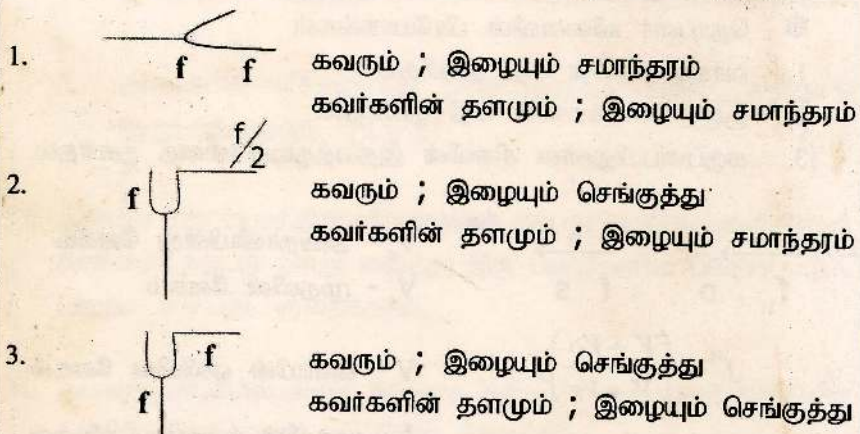 1. f f கவரும் ; இழையும் சமாந்தரம்
கவர்களின் தளமும் ; இழையும் சமாந்தரம்
2. f f/2 கவரும் ; இழையும் செங்குத்து
கவர்களின் தளமும் ; இழையும் சமாந்தரம்
3. f f கவரும் ; இழையும் செங்குத்து
கவர்களின் தளமும் ; இழையும் செங்குத்து